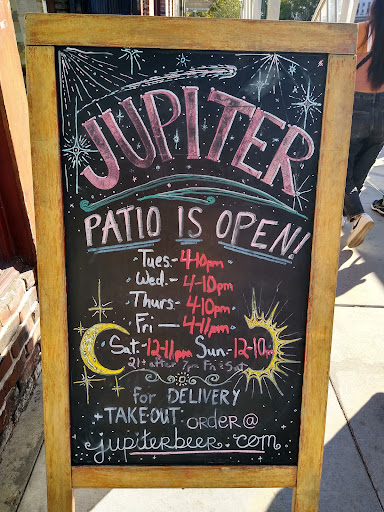 JUPITER
PATIO IS OPEN!
Tues.- 4-10pm
Wed.- 4-10pm
Thurs- 4-10pm
Fri — 4-11pm
Sat.- 12-11pm Sun.- 12-10pm
21+ after 7pm Fri & Sat
for DELIVERY
+ TAKE-OUT order@
jupiterbeer.com